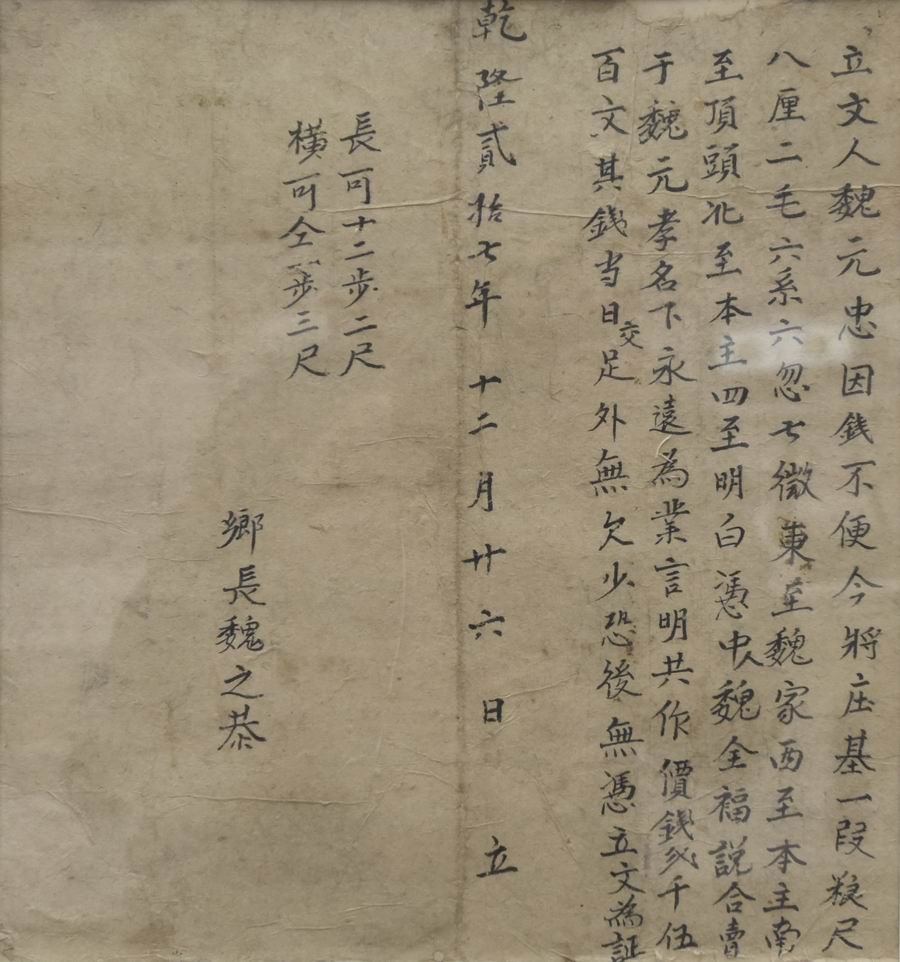 立文人魏元忠因銭不便今將庄基一段粮尺
八厘二毛六系六忽七微東至魏家西至本主南
至頂頭北至本主四至明白憑中人魏全福説合賣
于魏元孝名下永遠為業言明共作價銭弍千伍
百文其銭当日交足外無欠少恐後無憑立文為証
乾隆貳拾七年十二月廿六日立
長可十二步二尺
横可仝步三尺
鄉長魏之恭